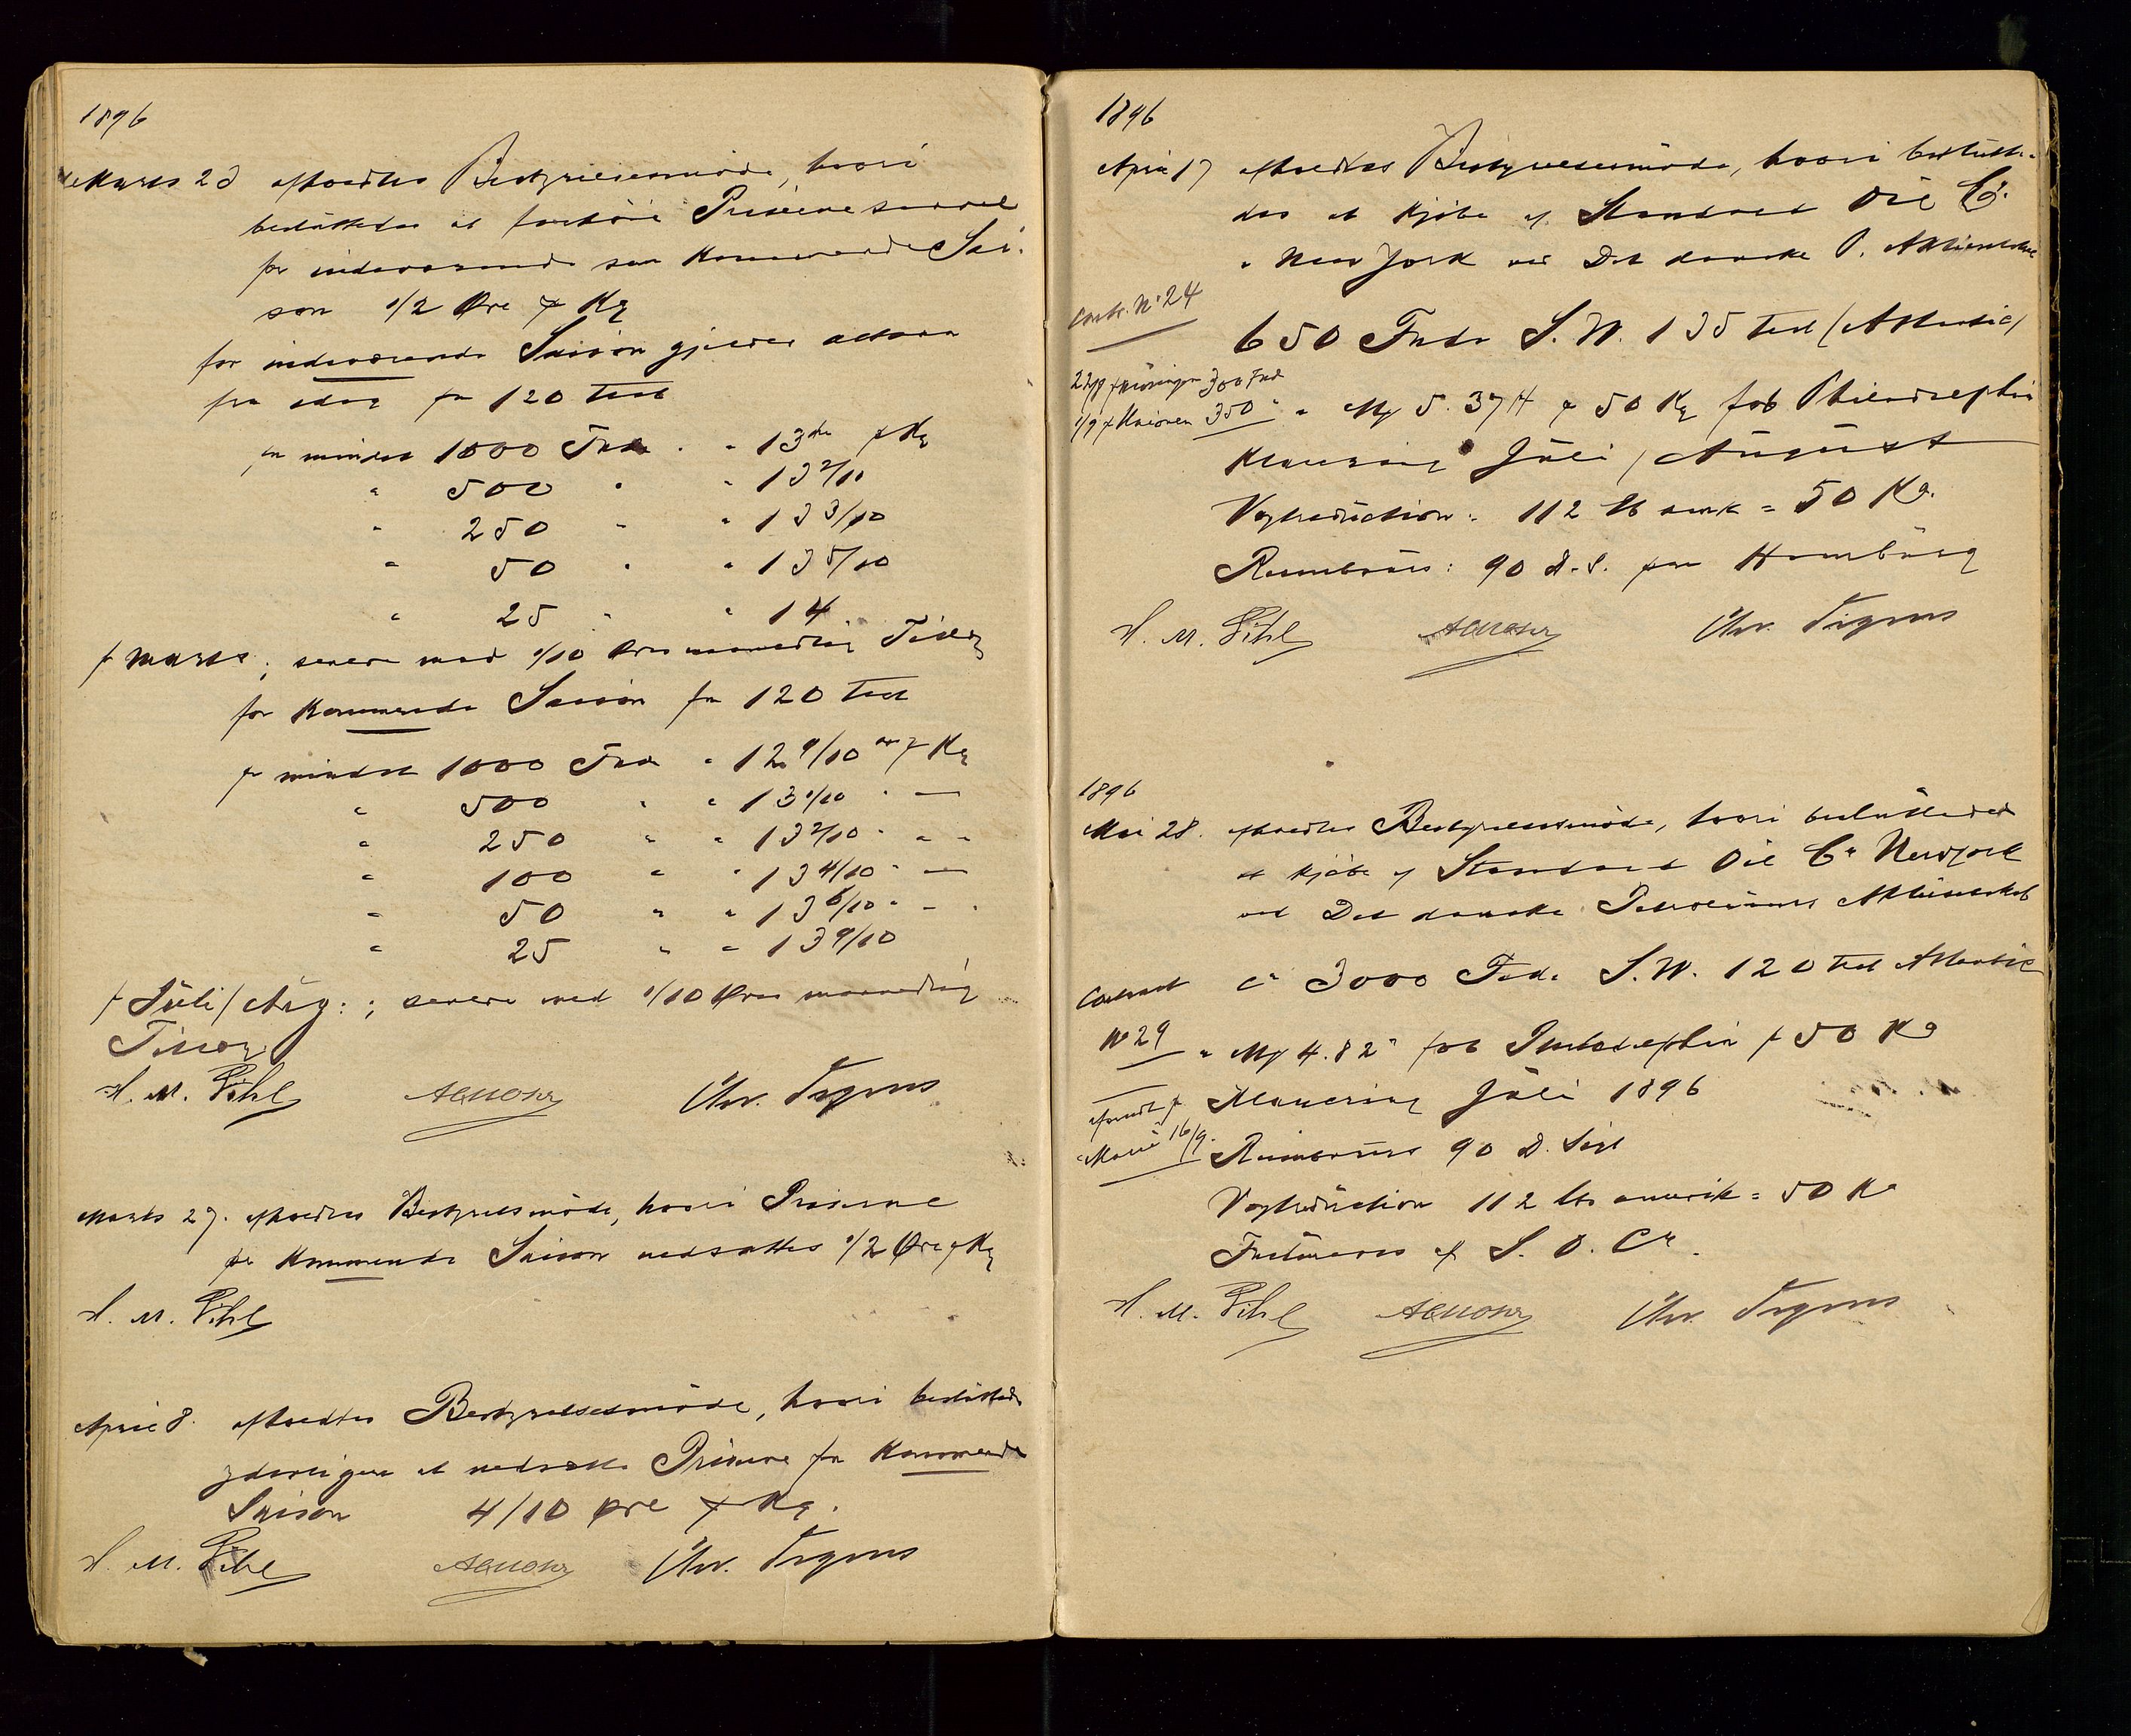 1896
Marts 23 afholdtes Bestyrelsesmøde, hvori
besluttedes at forhöie Priserne saavel
for indeværende som kommende Sai-
son 1/2 Øre pr Kg
for indeværende Saison gjælder altsaa
fra idag for 120 test
for mindst 1000 Fade " 13 Øre pr Kg
" 500 " " 13 2/10
" 250 " " 13 3/10
" 50 " " 13 5/10
" 25 " " 14
pr Marts; senere med 1/10 Øres maanedlig Tillæg
for kommende Saison for 120 test
for mindst 1000 Fade " 12 9/10 Øre pr Kg
" 500 " " 13 1/10 " —
" 250 " " 13 2/10 " "
" 100 " " 13 4/10 " —
" 50 " " 13 6/10 " -
" 25 " " 13 9/10
pr Juli/Aug:; senere med 1/10 Øres maanedlig
Tillæg
H. M. Pihl
Chr.
Marts 27. afholdtes Bestyrelsesmøde, hvori Priserne
for kommende Saison nedsattes 1/2 Øre pr Kg
H. M. Pihl
April 8. afholdtes Bestyrelsesmøde, hvori besluttedes
yderligere at nedsætte Priserne for kommende
Saison 4/10 Øre pr Kg.
H. M. Pihl
Chr.
1896
April 17 afholdtes Bestyrelsesmøde, hvori beslutte-
des at kjöbe af Standard Oil Co.
New York ved Det danske P. Aktieselskab
Contr. No 24
650 Fade S. W. 135 test (Atlantic)
300 Fad
350 " " Mk 5.37 1/4 pr 50 Kg fob Philadelphia
Klarering Juli/August
Vægtreduction: 112 lb amk = 50 Kg.
Reimbours: 90 d.s. paa Hamburg
H. M. Pihl
Chr.
1896
Mai 28. afholdtes Bestyrelsesmøde, hvori besluttedes
at kjöbe af Standard Oil Co Newyork
ved Det danske Petroleums Aktieselskab
Contract ca 3000 Fade S. W. 120 test Atlantic
No 29 " Mk 4.82 " fob Philadelphia pr 50 Kg
Klarering Juli 1896
16/9. Reimbours 90 d. Sigt
Vægtreduction 112 lbs amerik = 50 Kg
Faktureres af S. O. Co.
H. M. Pihl
Chr.